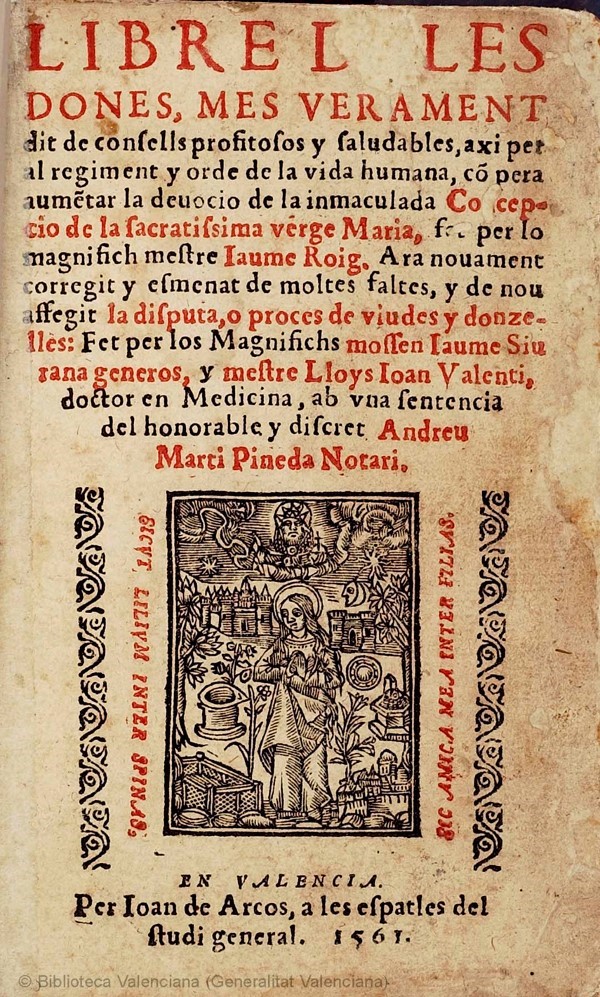 LIBRE L LES
DONES, MES VERAMENT
dit de conſells profitoſos y ſaludables, axi per
al regiment y orde de la vida humana, cõ pera
aumẽtar la deuocio de la inmaculada Co cep-
cio de la ſacratiſſima vérge Maria, per lo
magnifich meſtre Iaume Roig. Ara nouament
corregit y eſmenat de moltes faltes, y de nou
affegit la diſputa, o proces de viudes y donze-
lles: Fet per los Magnifichs moſſen Iaume Siu
rana generos, y meſtre Lloys Ioan Valenti,
doctor en Medicina, ab vna ſentencia
del honorable y diſcret Andreu
Marti Pineda Notari.
SICVT LILIVM INTER SPINAS.
SIC AMICA MEA INTER FILIAS.
EN VALENCIA.
Per Ioan de Arcos, a les eſpatles del
ſtudi general. 1561.
© Biblioteca Valenciana (Generalitat Valenciana)